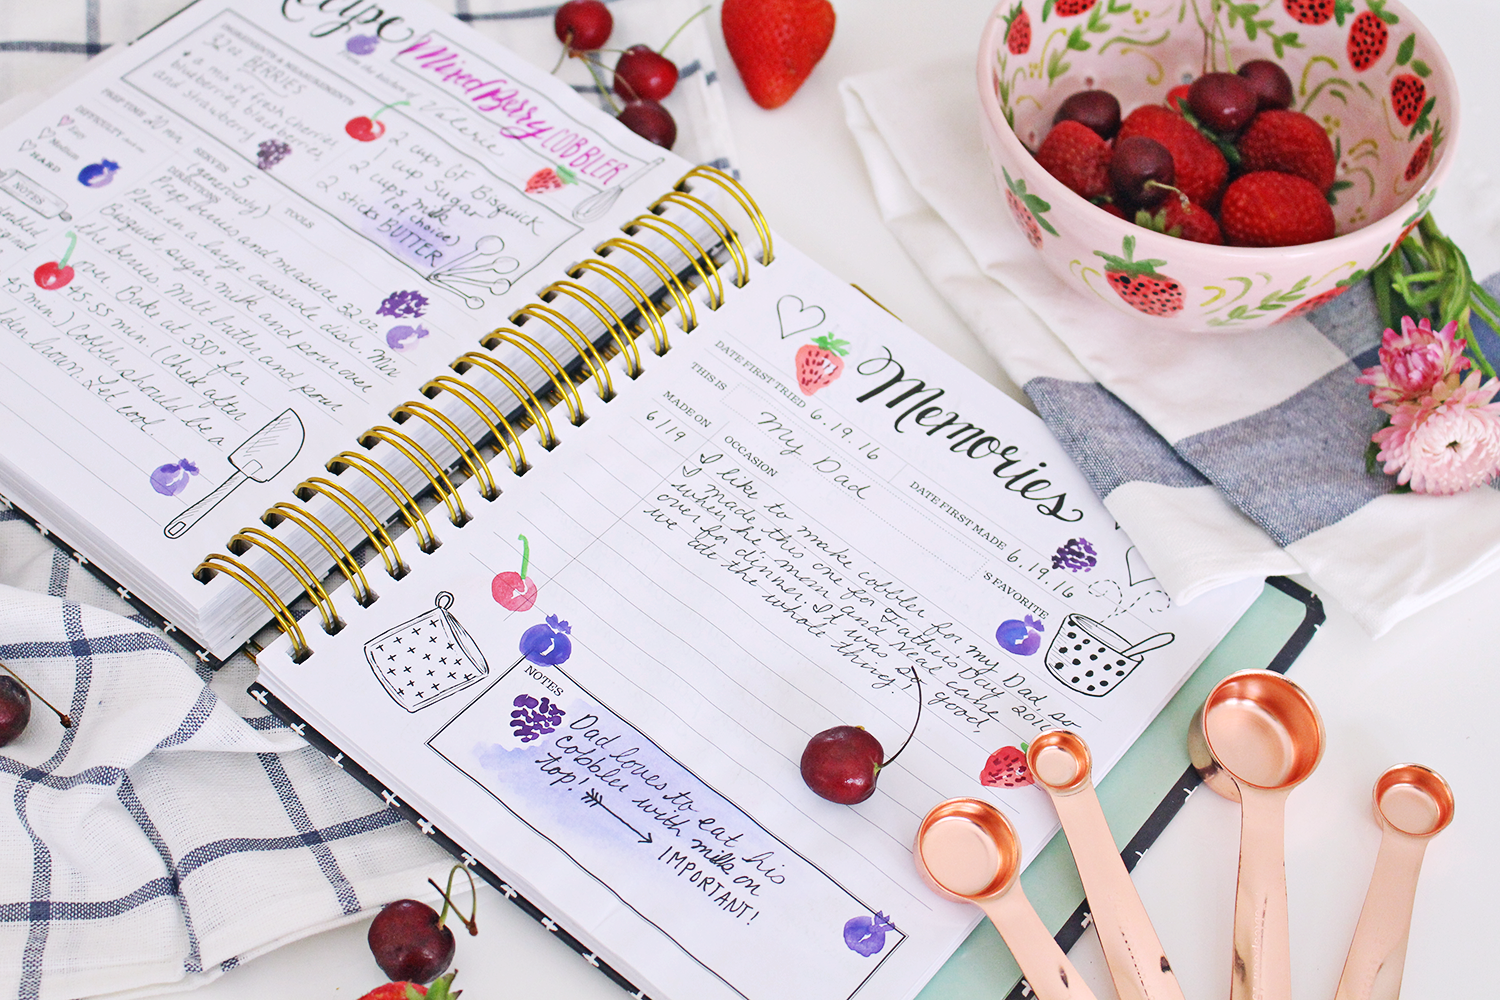 Recipe
Mixed Berry COBBLER
From the kitchen of Valerie
INGREDIENTS & MEASUREMENTS
32 oz BERRIES
• a mix of fresh cherries,
blueberries, blackberries,
and strawberry
2 cups GF Bisquick
1 cup Sugar
2 cups milk
(of choice)
2 sticks BUTTER
PREP TIME 20 min
SERVES 5
(generously)
TOOLS
DIFFICULTY
Easy
Medium
HARD
NOTES
DIRECTIONS
Prep berries and measure 32 oz.
Place in a large casserole dish. Mix
Bisquick, sugar, milk and pour over
the berries. Melt butter and pour
over. Bake at 350° for
45-55 min. (Check after
45 min.) Cobbler should be a
brown. Let cool.
Memories
DATE FIRST TRIED 6.19.16
DATE FIRST MADE 6.19.16
THIS IS My Dad 'S FAVORITE
MADE ON
6/19
OCCASION
I like to make cobbler for my Dad, so
I made this one for Father's Day 2016
when he, mom and Neal came
over for dinner. It was so good,
we ate the whole thing!
NOTES
Dad loves to eat his
cobbler with milk on
top! IMPORTANT!